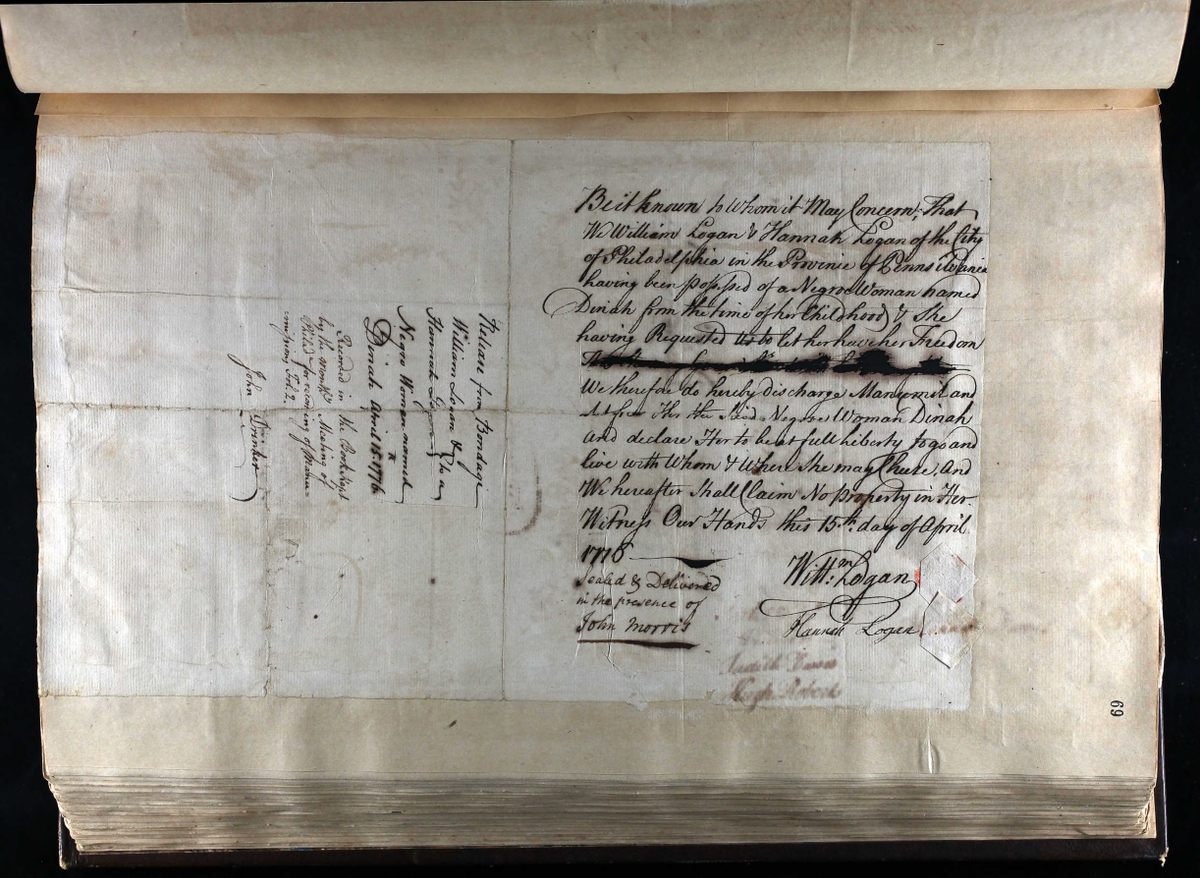 Be it known to Whom it May Concern; That
We William Logan & Hannah Logan of the City
of Philadelphia in the Province of Pennsilvania
having been possessed of a Negroe Woman named
Dinah from the time of her Childhood & She
having Requested us to let her have her Freedom
We therefore do hereby discharge Manumit and
set free Her the Said Negroe Woman Dinah
And declare Her to be at full Liberty to go and
live with Whom & Where She may Chuse. And
We hereafter Shall Claim No property in Her
Witness Our Hands this 15th day of April
1776
Sealed & Delivered
in the presence of
John Morris
Willm Logan
Hannah Logan
Hugh Roberts
Release from Bondage
William Logan &
Hannah Logan to a
Negro Woman named
Dinah April 15 1776
Recorded in the Book kept
by the Monthly Meeting of
Philada for recording of Manu-
missions Fol. 2
John Drinker
69